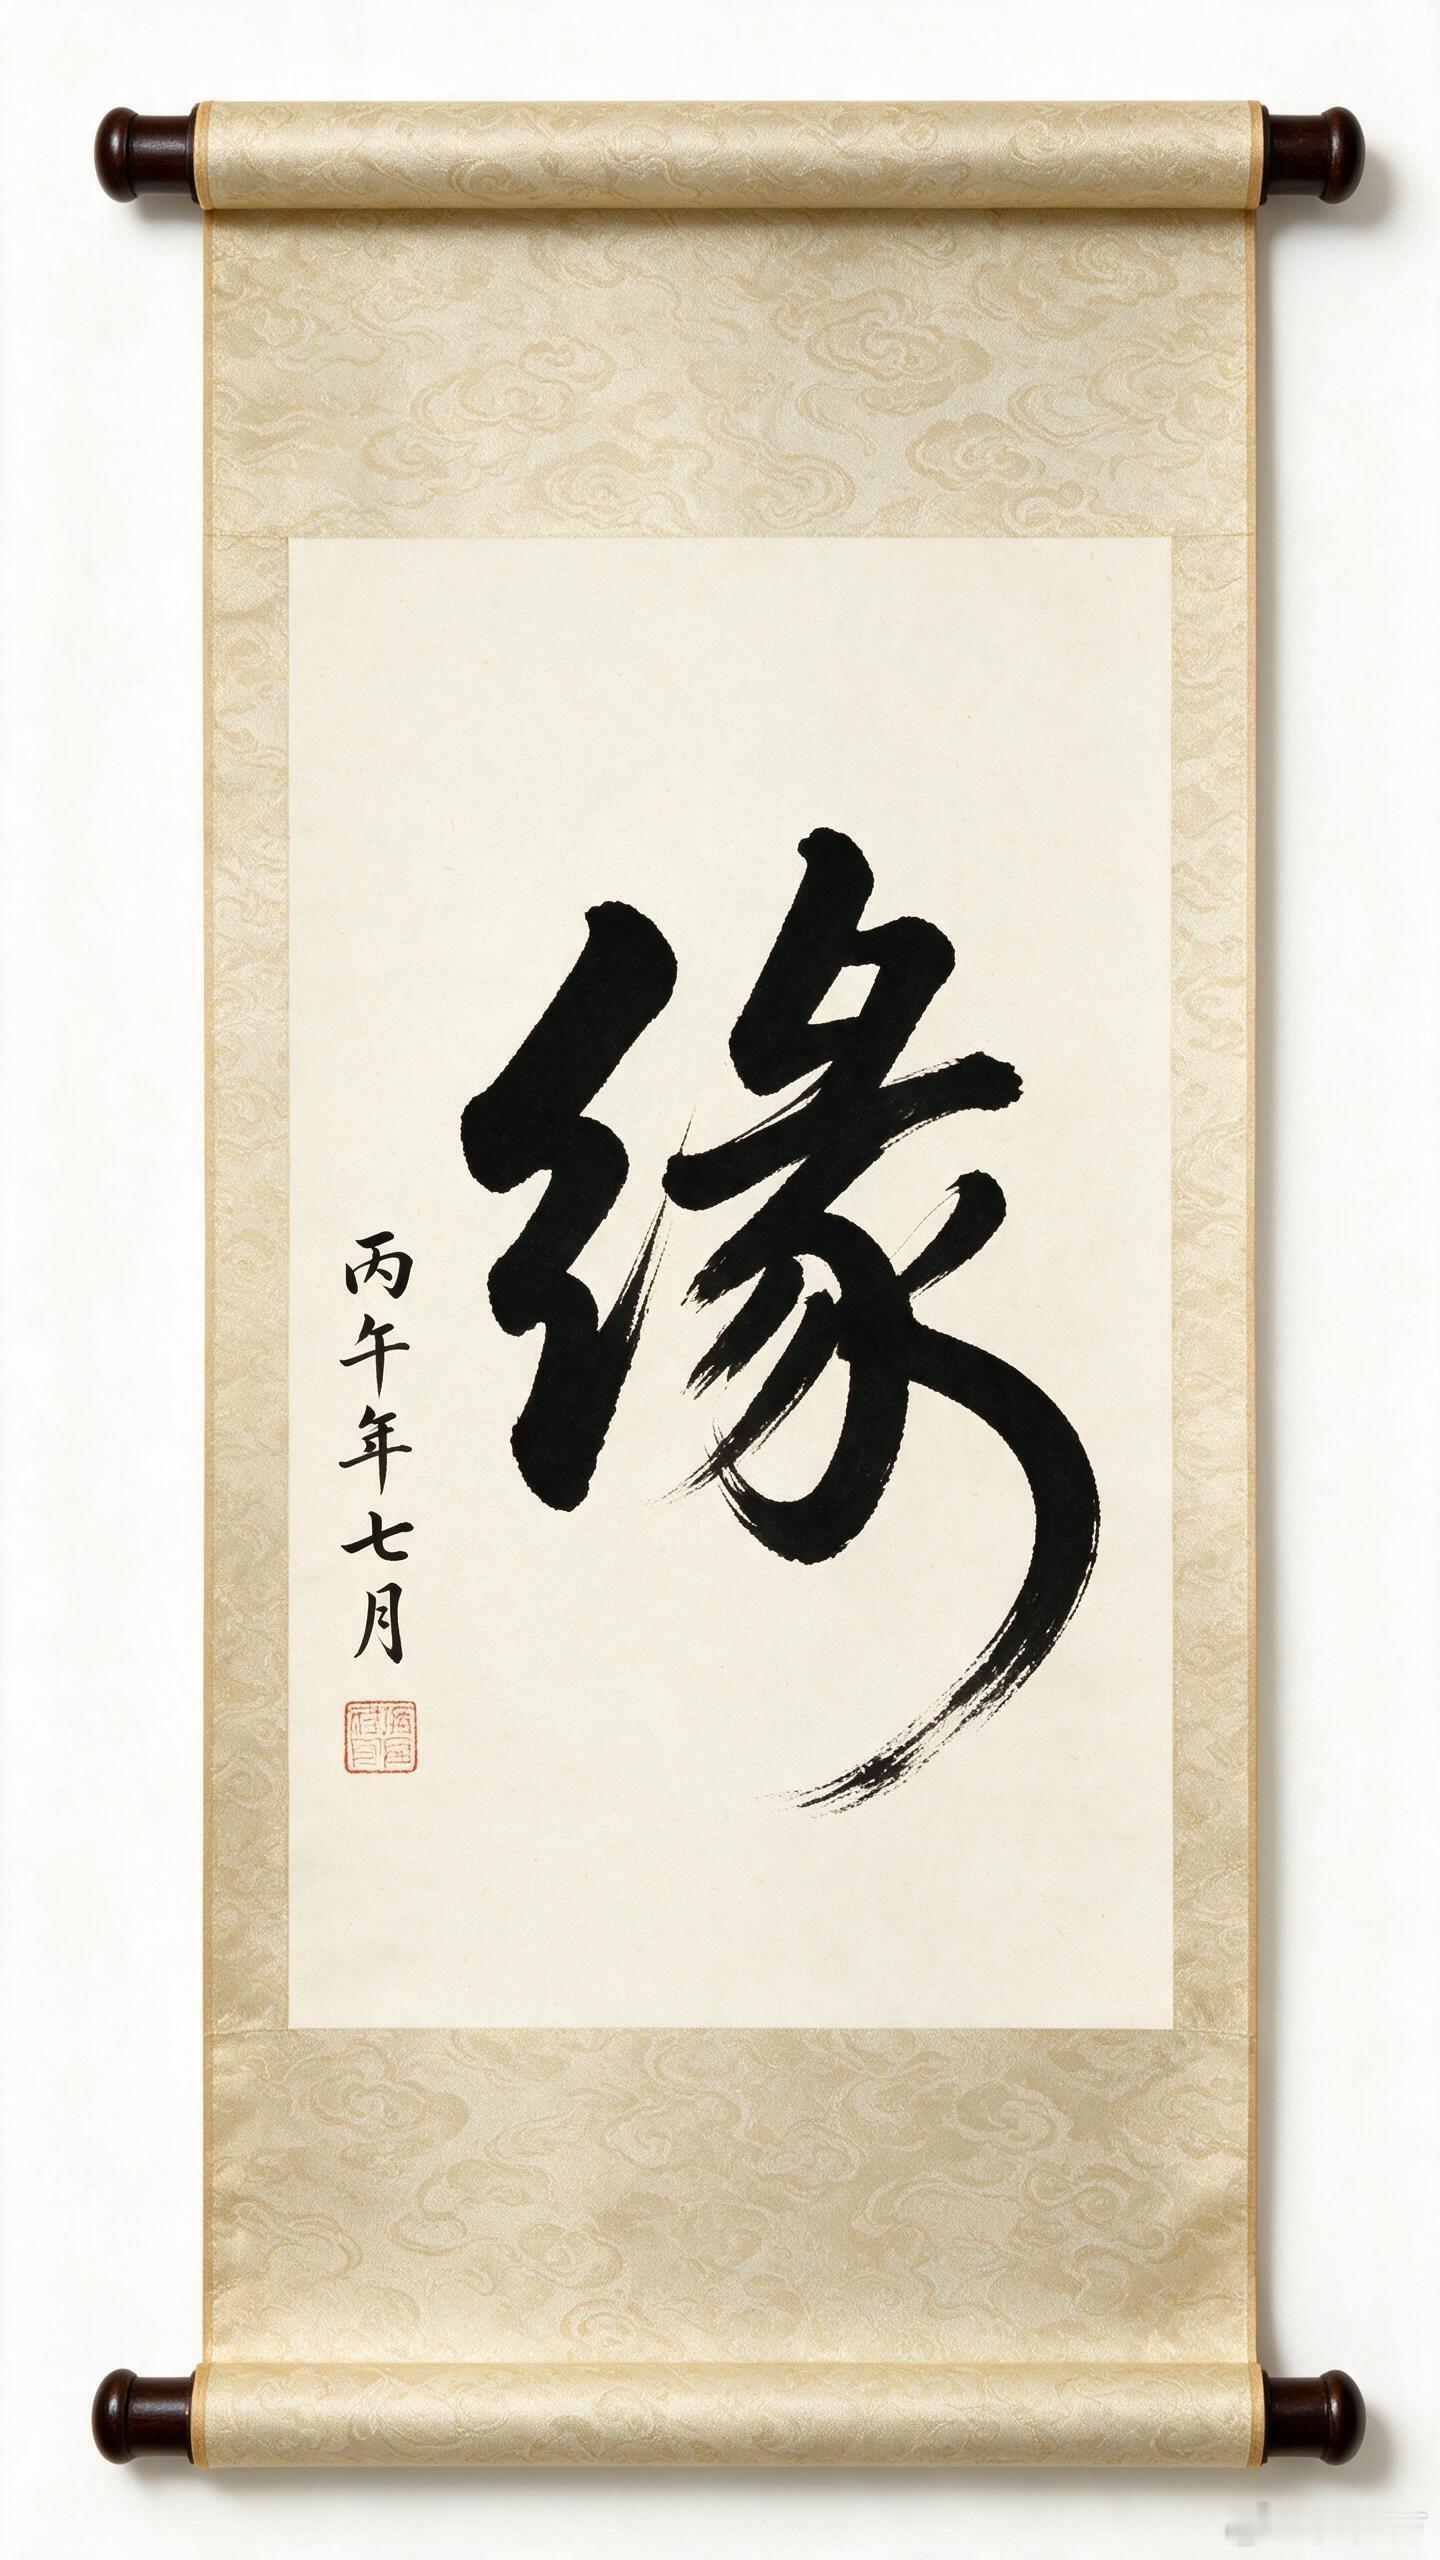 缘
丙午年七月